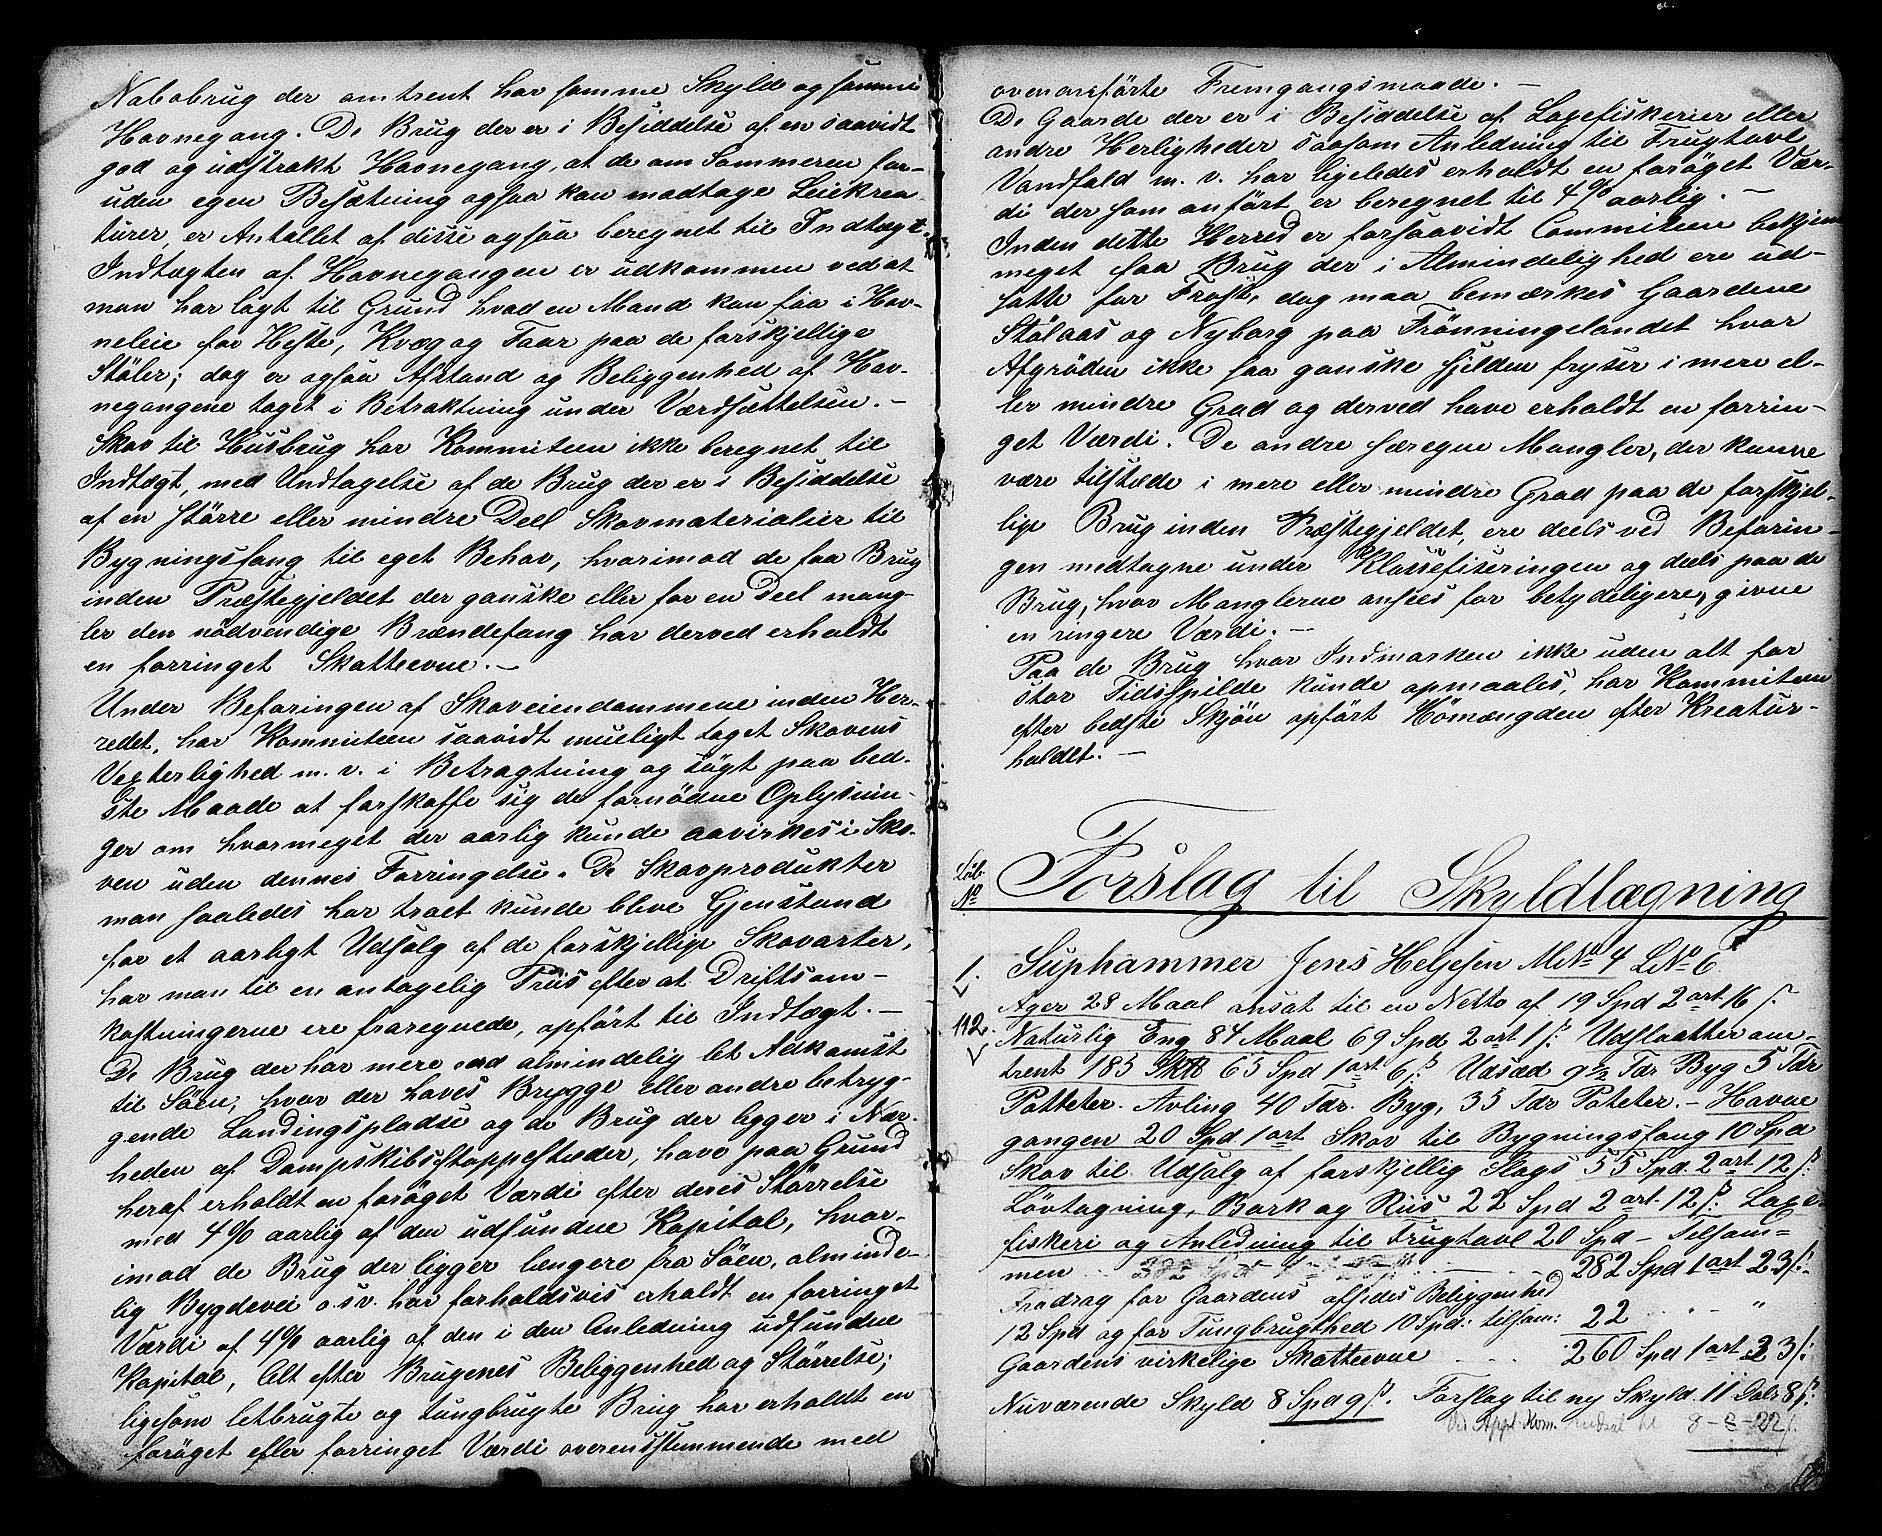 Nabobrug der omtrent har samme Skyld og samme
Havnegang. De Brug der er i Besiddelse af en saavidt
god og udstrakt Havnegang, at de om Sommeren for-
uden egen Besætning ogsaa kan modtage Leiekrea-
turer, er Antallet af disse ogsaa beregnet til Indtægt.
Indtægten af Havnegangen er udkommen ved at
man har lagt til Grund hvad en Mand kan faa i Hav-
neleie for Heste, Kvæg og Faar paa de forskjellige
Støler; dog er ogsaa Afstand og Beliggenhed af Hav-
negangene taget i Betraktning under Værdsættelsen. –
Skov til Husbrug har Kommiteen ikke beregnet til
Indtægt, med Undtagelse af de Brug der er i Besiddelse
af en større eller mindre Deel Skovmaterialier til
Bygningsfang til eget Behov, hvorimod de faa Brug
inden Præstegjeldet der ganske eller for en Deel mang-
ler den nødvendige Brændefang har derved erholdt
en forringet Skatteevne. –
Under Befaringen af Skoveiendommene inden Her-
redet, har Kommiteen saavidt mueligt taget Skovens
Vexterlighed m. v. i Betragtning og søgt paa bed-
ste Maade at forskaffe sig de fornødne Oplysnin-
ger om hvormeget der aarlig kunde aavirkes i Sko-
ven uden dennes Forringelse. De Skovprodukter
man saaledes har troet kunde blive Gjenstand
for et aarligt Udsalg af de forskjellige Skovarter,
har man til en antagelig Priis efter at Driftsom-
kostningerne ere fraregnede, opført til Indtægt. –
De Brug der har mere end almindelig let Adkomst
til Søen, hvor der haves Brygge eller andre betryg-
gende Landingspladse og de Brug der ligger i Nær-
heden af Dampskibsstoppesteder, have paa Grund
heraf erholdt en forøget Værdi efter deres Størrelse
med 4% aarlig af den udfundne Kapital, hvor-
imod de Brug der ligger længere fra Søen, alminde-
lig Bygdevei o. s. v. har forholdsvis erholdt en forringet
Værdi af 4% aarlig af den i den Anledning udfundne
Kapital, Alt efter Brugenes Beliggenhed og Størrelse;
ligesom letbrugte og tungbrugte Brug har erholdt en
forøget eller forringet Værdi overensstemmende med
ovenanførte Fremgangsmaade. –
De Gaarde der er i Besiddelse af Laxefiskerier eller
andre Herligheder saasom Anledning til Frugtavl
Vandfald m. v. har ligeledes erholdt en forøget Vær-
di der som anført er beregnet til 4% aarlig. –
Inden dette Herred er forsaavidt Commiteen bekjend
meget faa Brug der i Almindelighed ere ud-
satte for Frost, dog maa bemærkes Gaardene
Stølaas og Nyborg paa Frønningelandet hvor
Afgrøden ikke saa ganske sjelden fryser i mere el-
ler mindre Grad og derved have erholdt en forrin-
get Værdi. De andre særegne Mangler, der kunne
være tilstede i mere eller mindre Grad paa de forskjel-
lige Brug inden Præstegjeldet, ere deels ved Befarin-
gen medtagne under Klassefiseringen og deels paa de
Brug, hvor Manglerne ansees for betydeligere, givne
en ringere Værdi. –
Paa de Brug hvor Indmarken ikke uden alt for
stor Tidsspilde kunde opmaales, har Kommiteen
efter bedste Skjøn opført Hømængden efter Kreatur-
holdet. –
Løb.
No Forslag til Skyldlægning
1. Suphammer Jens Helgesen MNo 4 LNo 6
Ager 28 Maal ansat til en Netto af 19 Spd 2 ort 16 s.
112. Naturlig Eng 84 Maal 69 Spd 2 ort 1 s: Udslaatter om-
trent 185 65 Spd 1 ort 6 s: Udsæd 9½ Tdr Byg 5 Tdr
Potteter. Avling 40 Tdr. Byg, 35 Tdr Poteter. – Havne
gangen 20 Spd 1 ort Skov til Bygningsfang 10 Spd
Skov til Udsalg af forskjellig Slags 55 Spd. 2 ort 12 s:
Løvtagning, Bark og Riis 22 Spd 2 ort. 12 s: Laxe-
fiskeri og Anledning til Frugtavl 20 Spd – Tilsam-
men 282 Spd 1 ort 23 s.
Fradrag for Gaardens afsides Beliggenhed
12 Spd og for Tungbrugthed 10 Spd: tilsam: 22 " – "
Gaardens virkelige Skatteevne 260 Spd 1 ort 23 s:
Nuværende Skyld 8 Spd 9 s. Forslag til ny Skyld. 11 Dal: 8 s.
Ved Appel Kom. nedsat til 8 – 2 – 22 s.